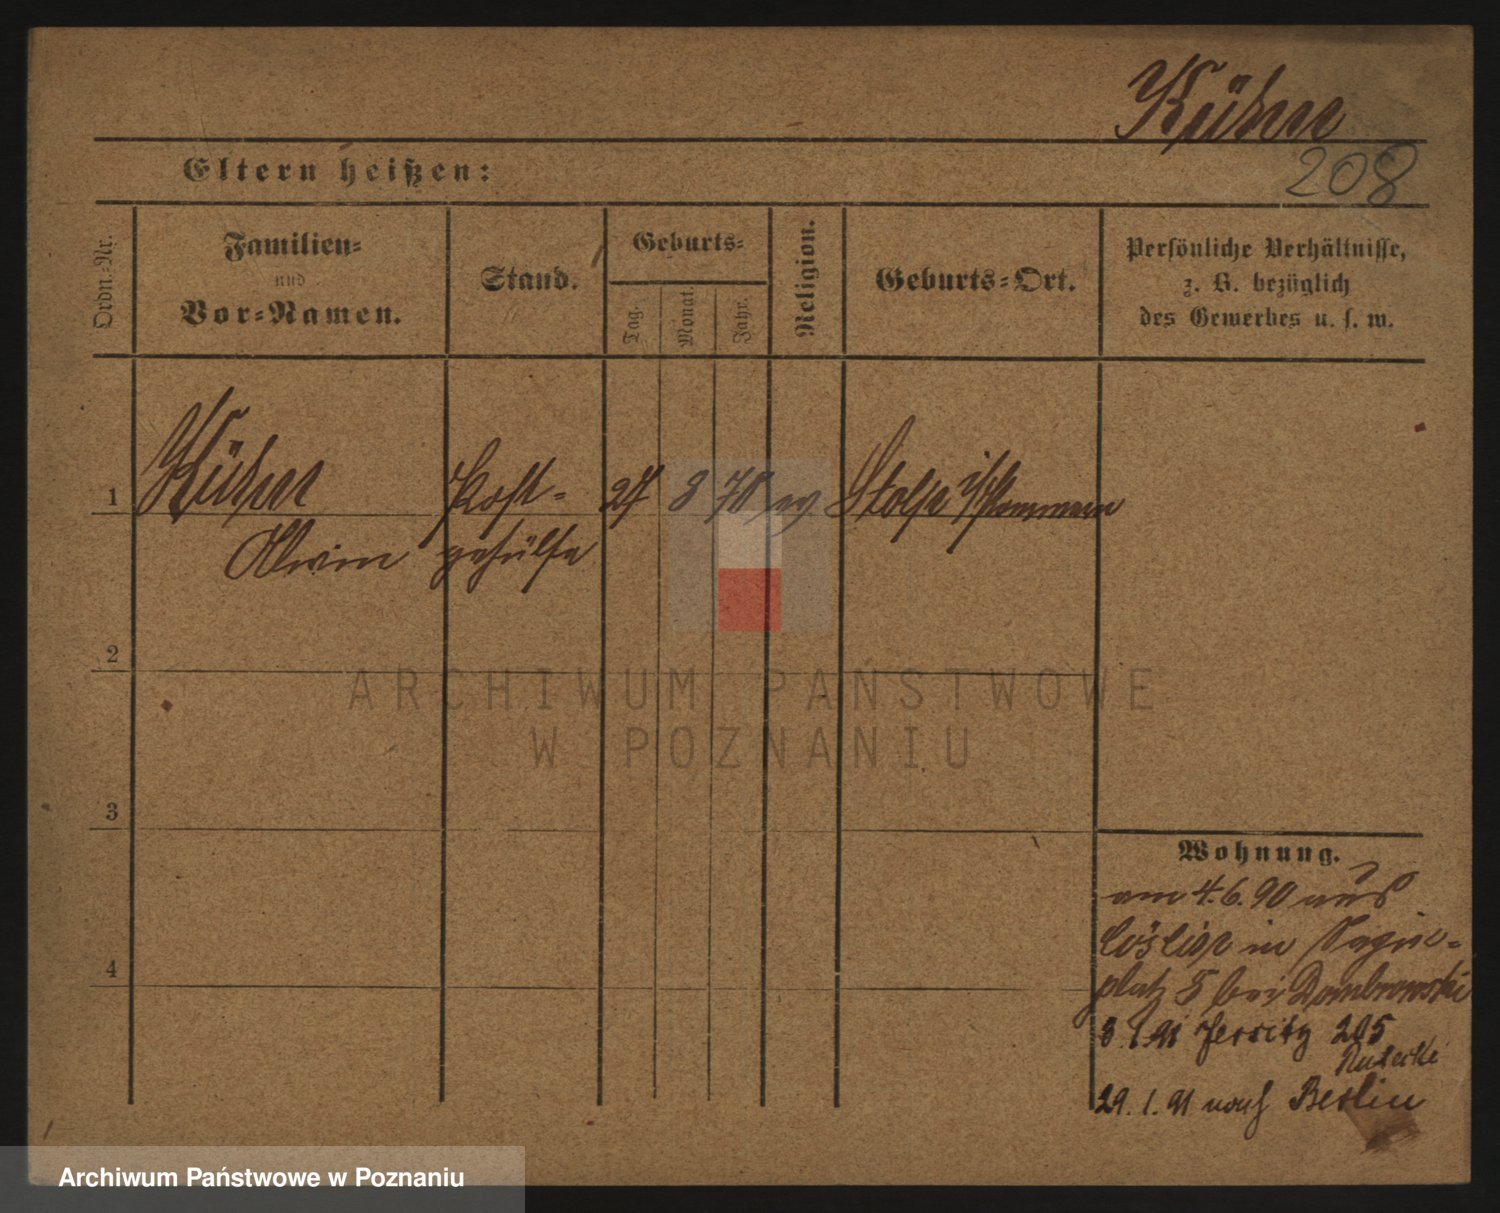 Kühn
208
Eltern heißen:
Ordn.-Nr.
Familien-
und
Vor-Namen.
Stand.
Geburts-
Tag.
Monat.
Jahr.
Religion.
Geburts-Ort.
Persönliche Verhältnisse,
z. B. bezüglich
des Gewerbes u. s. w.
1 Kühn Post- 27 8 70 ev Stolp i/Pommern
Alwin gehülfe
2
3
4
ARCHIWUM PAŃSTWOWE
W POZNANIU
Wohnung.
am 4.6.90 aus
Cöslin in
platz 5 bei Dombrowski
3.1.91 Jersitz 205
29.1.91 nach Berlin
Archiwum Państwowe w Poznaniu